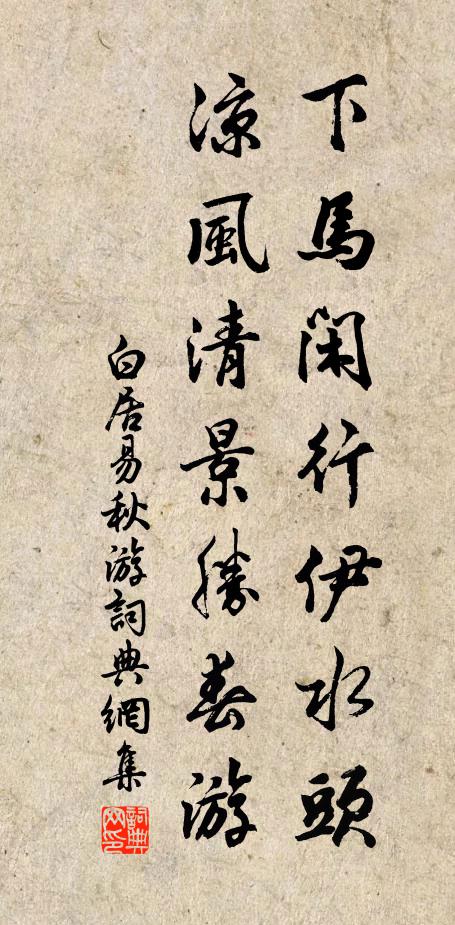 下馬閑行伊水頭
凉風清景勝春游
白居易秋游詞典網集
詞典網印